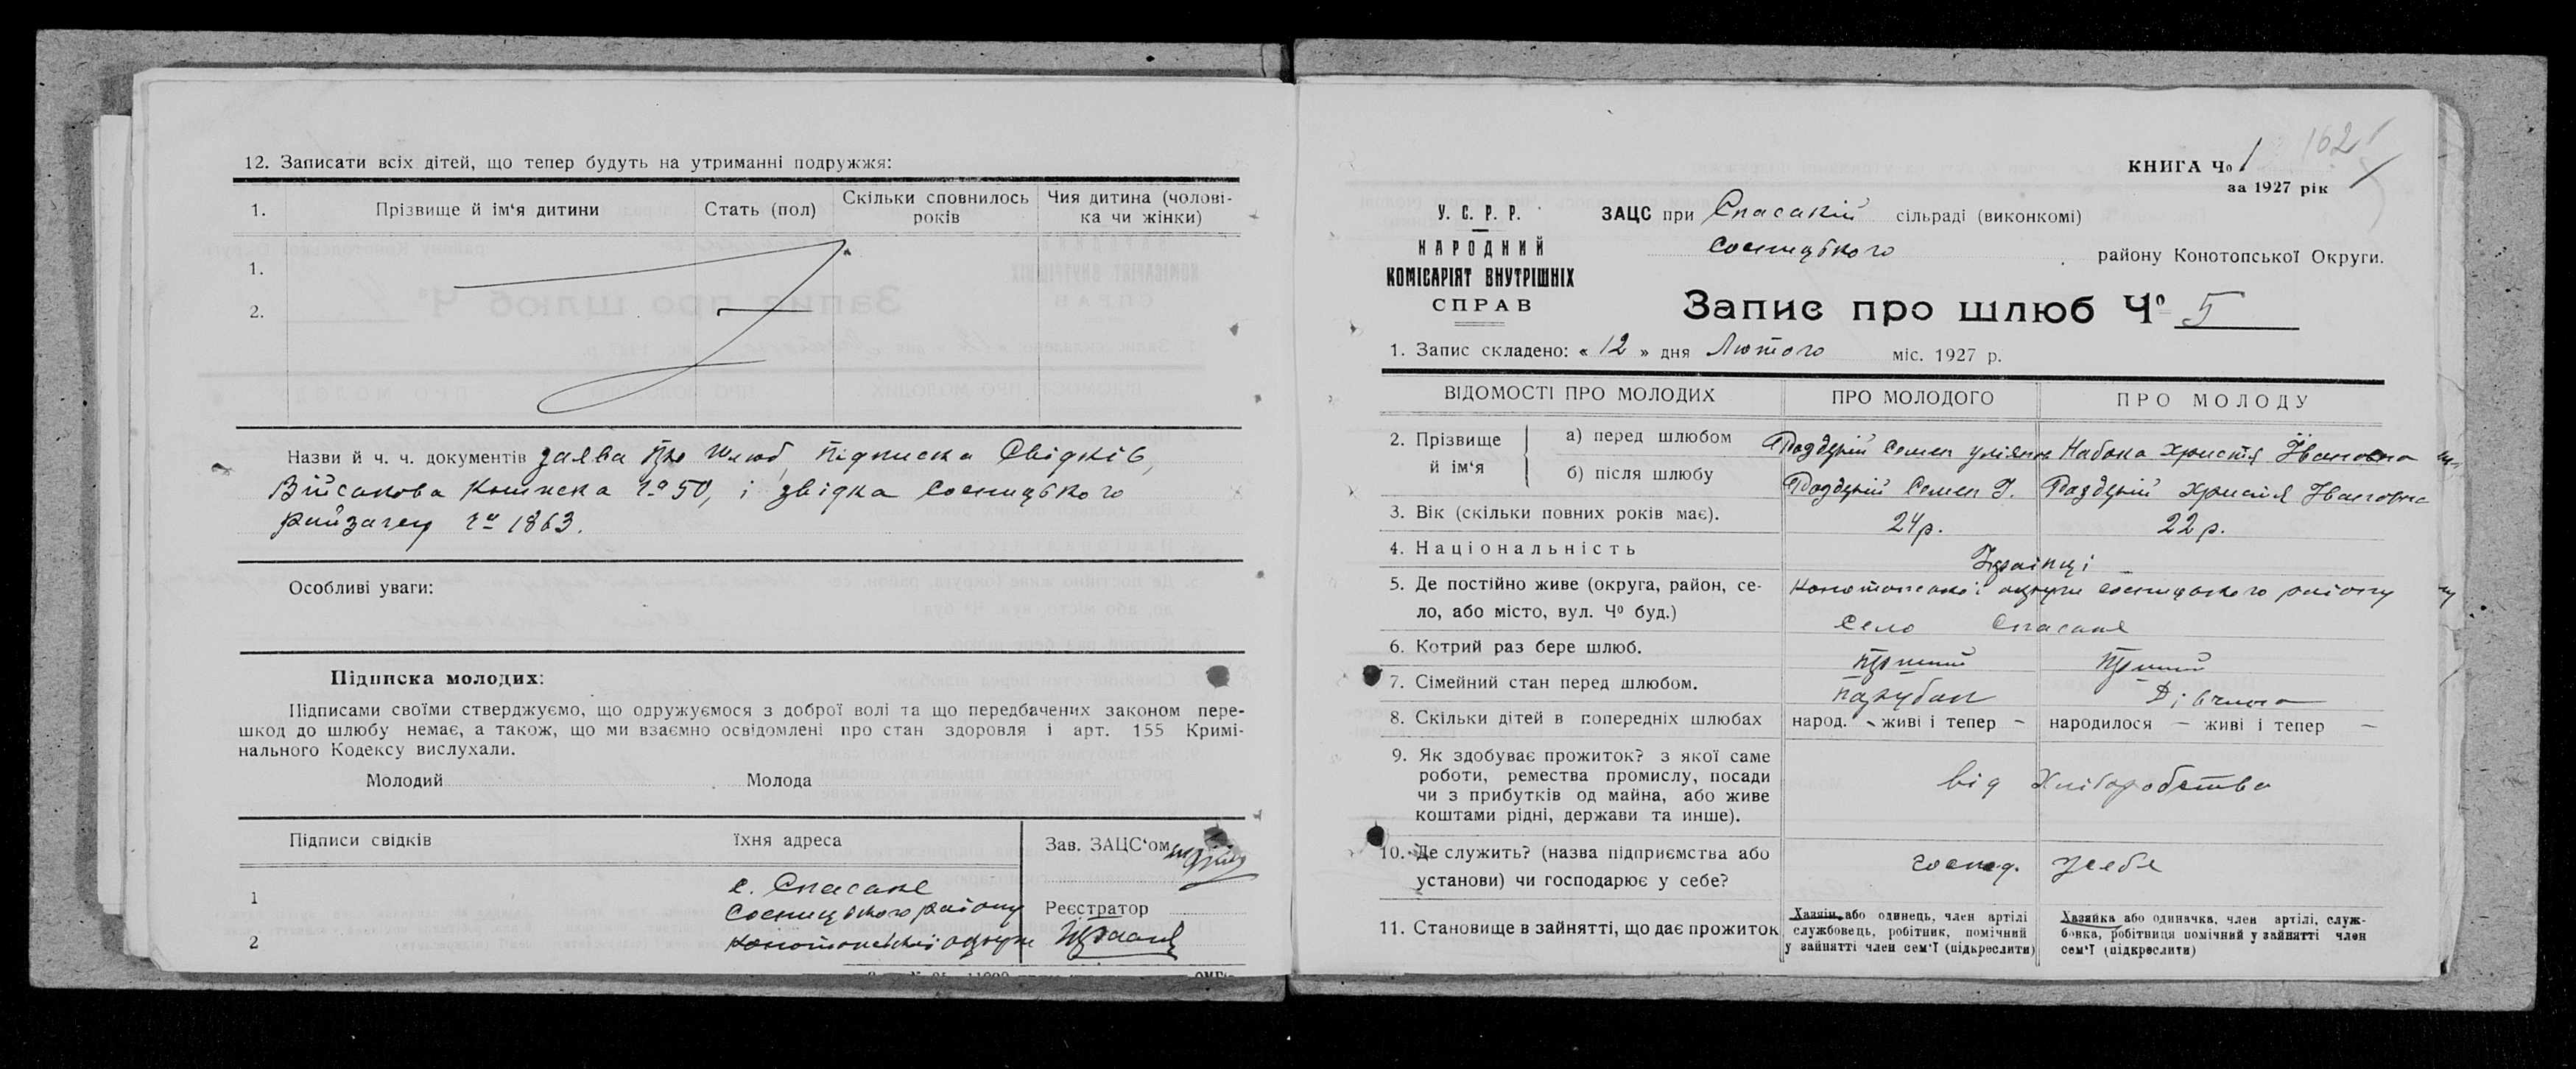 12. Записати всіх дітей, що тепер будуть на утриманні подружжя:
1. Прізвище й ім‘я дитини Стать (пол) Скільки сповнилось років Чия дитина (чолові-ка чи жінки)
1.
2.
Назви й ч. ч. документів заява про шлюб, підписка свідків,
Військова книжка № 50, і звідка Сосницького
райзагсу № 1863.
Особливі уваги:
Підписка молодих:
Підписами своїми стверджуємо, що одружуємося з доброї волі та що передбачених законом пере-
шкод до шлюбу немає, а також, що ми взаємно освідомлені про стан здоровля і арт. 155 Кримі-
нального Кодексу вислухали.
Молодий Молода
Підписи свідків Їхня адреса Зав. ЗАЦС‘ом
1 с. Спаське
Сосницького району Реєстратор
2 Конотопської округи
КНИГА Чо 1 162
за 1927 рік
У. С. Р. Р.
НАРОДНИЙ
КОМІСАРІЯТ ВНУТРІШНІХ
СПРАВ
ЗАЦС при Спаській сільраді (виконкомі)
Сосницького району Конотопської Округи.
Запис про шлюб Чо 5
1. Запис складено: « 12 » дня Лютого міс. 1927 р.
ВІДОМОСТІ ПРО МОЛОДИХ ПРО МОЛОДОГО ПРО МОЛОДУ
2. Прізвище й ім‘я
а) перед шлюбом Семен Набока Христя Івановна
б) після шлюбу Семен Христя Івановна
3. Вік (скільки повних років має). 24 р. 22 р.
4. Національність Українці
5. Де постійно живе (округа, район, се- Конотопської округи Сосницького району
ло, або місто, вул. Чо буд.) Село Спаське
6. Котрий раз бере шлюб. Перший Перший
7. Сімейний стан перед шлюбом. парубак Дівчина
8. Скільки дітей в попередніх шлюбах народ. - живі і тепер - народилося - живі і тепер -
9. Як здобуває прожиток? з якої саме
роботи, ремества промислу, посади від Хліборобства
чи з прибутків од майна, або живе
коштами рідні, держави та инше).
10. Де служить? (назва підприємства або господ. у себе
установи) чи господарює у себе?
11. Становище в зайнятті, що дає прожиток
Хазяїн або одинець, член артілі
службовець, робітник, помічний
у зайнятті член сем‘ї (підкреслити)
Хазяйка або одиначка, член артілі, служ-
бовка, робітниця помічний у зайнятті член
сем‘ї (підкреслити)